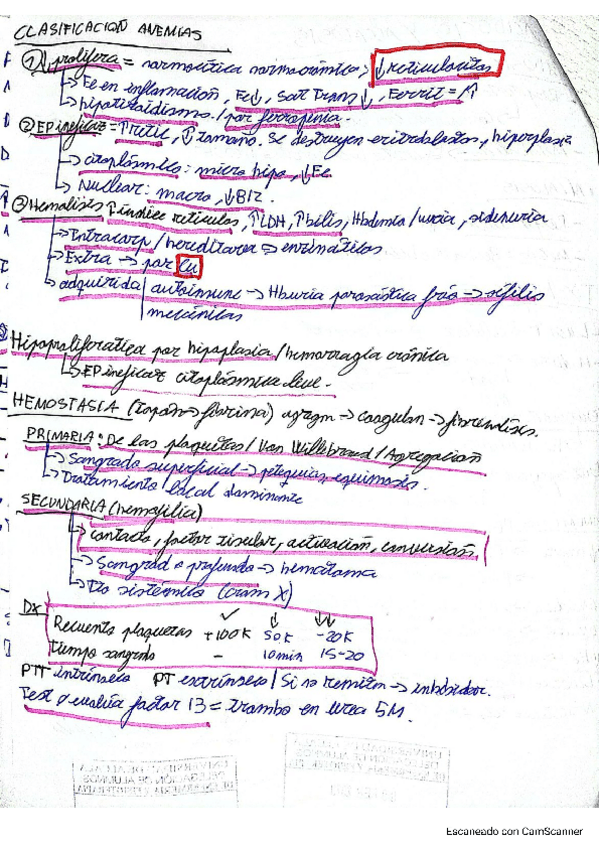 CLASIFICACION ANEMIAS
① ↓ prolifera = normocítica normocrómica, ↓ Reticulocitos
↳ Fe en inflamación, Fe↓, Sat Trans ↓, Ferrit = /↑
↳ hipotiroidismo / por ferropenia.
② EP ineficaz = ↑ retic, ↓ tamaño. Se destruyen eritroblastos, hiperplasia
↳ citoplásmico: micro hipo, ↓ Fe
↳ Nuclear: macro, ↓B12.
③ Hemolisis ↑ índice reticulos, ↑LDH, ↑bilis, Hbdemia/uuria, siderruria
↳ Intracorp / hereditarea → enzimáticas
↳ Extra → por Cu
↳ adquirida autoinmune → Hburia paroxística frío → sífilis
mecánicas
Hipoproliferatica por hipoplasia / hemorragia crónica
↳ EP ineficaz citoplásmica leve.
HEMOSTASIA (tapón → fibrina) agregan → coagulan → fibrinolisis.
PRIMARIA: De las plaquetas / Von Willebrand / Agregacion
↳ Sangrado superficial → petequias, equimosis.
↳ Tratamiento local dominante
SECUNDARIA (hemofilia)
↳ contacto, factor tisular, activación, conversión.
↳ Sangrado profundo → hematoma
↳ Tto sistémico (crom X)
DX ✓ ↓ ↓↓
Recuento plaquetas +100K 50K -20K
tiempo sangrado - 10min 15-20
PTT intrínseco PT extrínseco / Si no remiten → inhibidor.
Test evalúa factor 13 = trombo en urea 5M.
Escaneado con CamScanner